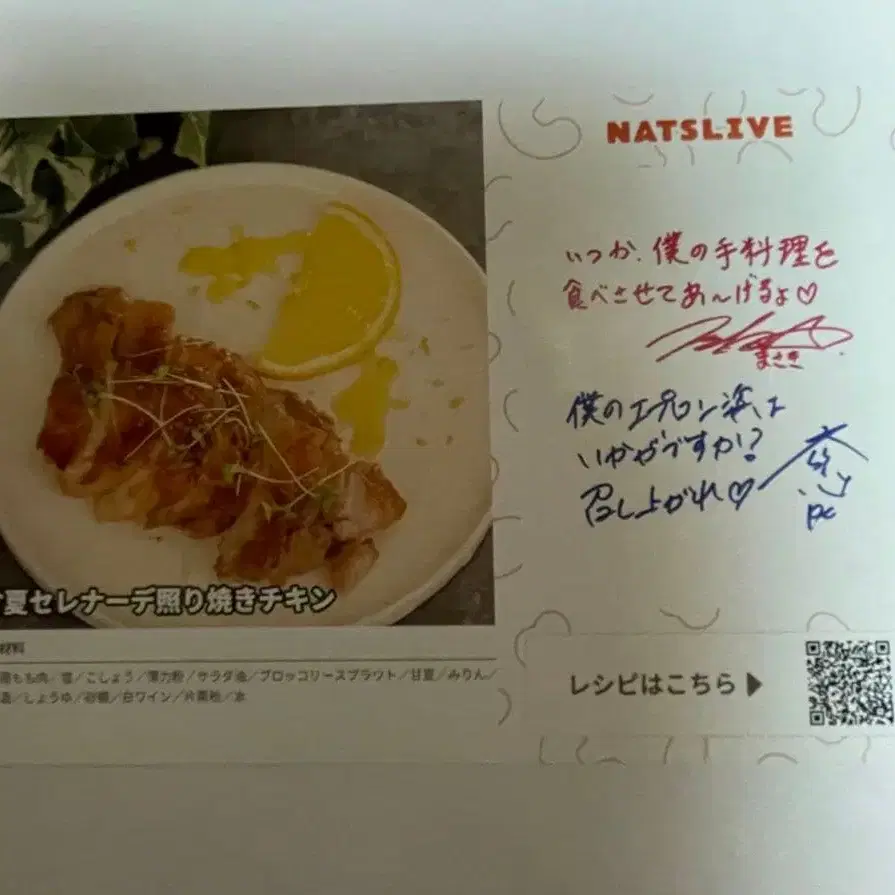 NATSLIVE
いつか、僕の手料理を
食べさせてあ〜げるよ♡
まさき
僕のエプロン姿は
いかがですか!?
召し上がれ♡
夏セレナーデ照り焼きチキン
材料
鶏もも肉/塩/こしょう/薄力粉/サラダ油/ブロッコリースプラウト/甘夏/みりん/
酒/しょうゆ/砂糖/白ワイン/片栗粉/水
レシピはこちら▶